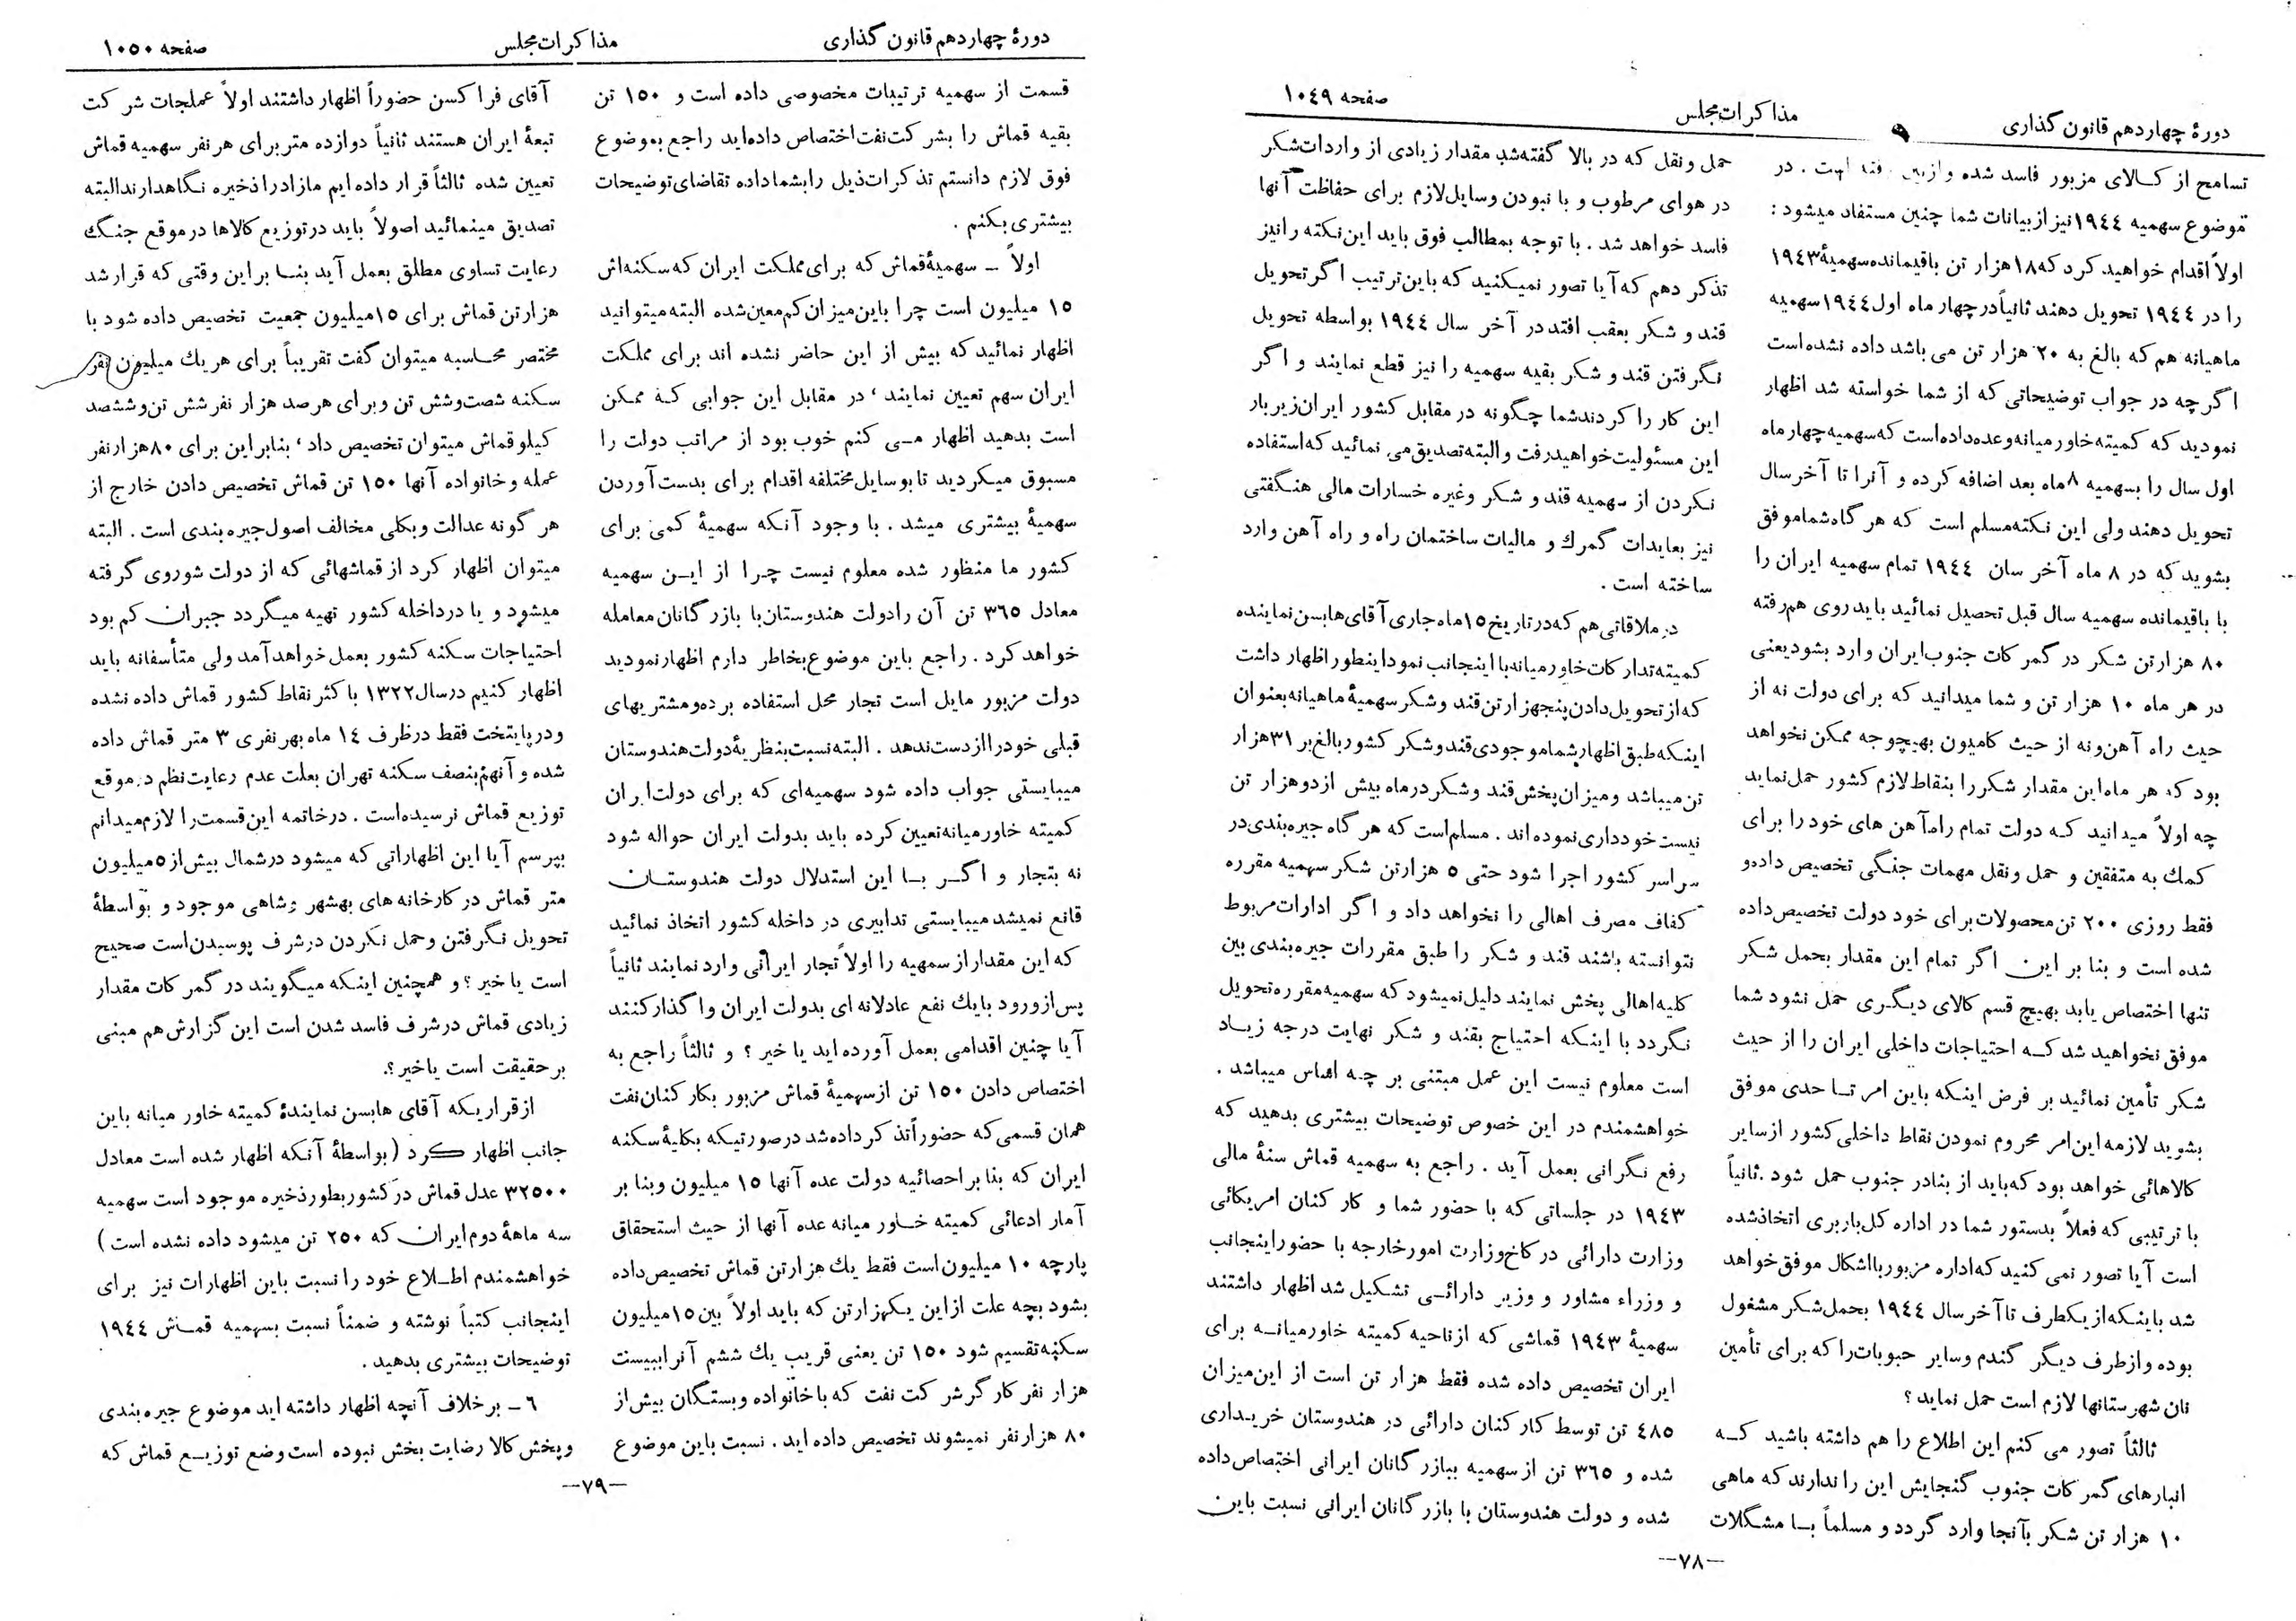 دورهٔ چهاردهم قانون گذاری
مذاکرات مجلس
صفحه ۱۰٤۹
تسامح از کالای مزبور فاسد شده وازبین رفته است . در
موضوع سهمیه ۱۹٤٤ نیز از بیانات شما چنین مستفاد میشود :
اولاً اقدام خواهید کرد که ۱۸ هزار تن باقیمانده سهمیهٔ ۱۹٤۳
را در ۱۹٤٤ تحویل دهند ثانیاً در چهار ماه اول ۱۹٤٤ سهمیه
ماهیانه هم که بالغ به ۲۰ هزار تن می باشد داده نشده است
اگر چه در جواب توضیحاتی که از شما خواسته شد اظهار
نمودید که کمیته خاور میانه وعده داده است که سهمیه چهار ماه
اول سال را بسهمیه ۸ ماه بعد اضافه کرده و آنرا تا آخر سال
تحویل دهند ولی این نکته مسلم است که هر گاه شما موفق
بشوید که در ۸ ماه آخر سان ۱۹٤٤ تمام سهمیه ایران را
با باقیمانده سهمیه سال قبل تحصیل نمائید باید روی هم رفته
۸۰ هزار تن شکر در گمرکات جنوب ایران وارد بشود یعنی
در هر ماه ۱۰ هزار تن و شما میدانید که برای دولت نه از
حیث راه آهن ونه از حیث کامیون بهیچوجه ممکن نخواهد
بود که هر ماه این مقدار شکر را بنقاط لازم کشور حمل نماید
چه اولاً میدانید کـه دولت تمام راه آهن های خود را برای
کمك به متفقین و حمل ونقل مهمات جنگی تخصیص داده و
فقط روزی ۲۰۰ تن محصولات برای خود دولت تخصیص داده
شده است و بنا بر این اگر تمام این مقدار بحمل شکر
تنها اختصاص یابد بهیچ قسم کالای دیگری حمل نشود شما
موفق نخواهید شد کـه احتیاجات داخلی ایران را از حیث
شکر تأمین نمائید بر فرض اینکه باین امر تـا حدی موفق
بشوید لازمه این امر محروم نمودن نقاط داخلی کشور از سایر
کالاهائی خواهد بود که باید از بنادر جنوب حمل شود . ثانیاً
با ترتیبی که فعلاً بدستور شما در اداره کل باربری اتخاذ شده
است آیا تصور نمی کنید که اداره مزبور بااشکال موفق خواهد
شد باینکه از یکطرف تا آخر سال ۱۹٤٤ بحمل شکر مشغول
بوده و از طرف دیگر گندم وسایر حبوبات را که برای تأمین
نان شهرستانها لازم است حمل نماید ؟
ثالثاً تصور می کنم این اطلاع را هم داشته باشید کـه
انبارهای گمرکات جنوب گنجایش این را ندارند که ماهی
۱۰ هزار تن شکر بآنجا وارد گردد و مسلماً بـا مشگلات
حمل ونقل که در بالا گفته شد مقدار زیادی از واردات شکر
در هوای مرطوب و با نبودن وسایل لازم برای حفاظت آنها
فاسد خواهد شد . با توجه بمطالب فوق باید این نکته را نیز
تذکر دهم که آیا تصور نمیکنید که باین ترتیب اگر تحویل
قند و شکر بعقب افتد در آخر سال ۱۹٤٤ بواسطه تحویل
نگرفتن قند و شکر بقیه سهمیه را نیز قطع نمایند و اگر
این کار را کردند شما چگونه در مقابل کشور ایران زیر بار
این مسئولیت خواهید رفت و البته تصدیق می نمائید که استفاده
نکردن از سهمیه قند و شکر وغیره خسارات مالی هنگفتی
نیز بعایدات گمرك و مالیات ساختمان راه و راه آهن وارد
ساخته است .
در ملاقاتی هم که در تاریخ ۱٥ ماه جاری آقای هابسن نماینده
کمیته تدارکات خاور میانه با اینجانب نمود اینطور اظهار داشت
که از تحویل دادن پنجهزار تن قند وشکر سهمیهٔ ماهیانه بعنوان
اینکه طبق اظهار شما موجودی قند و شکر کشور بالغ بر ۳۱ هزار
تن میباشد و میزان پخش قند وشکر در ماه بیش از دو هزار تن
نیست خودداری نموده اند . مسلم است که هر گاه جیره بندی در
سراسر کشور اجرا شود حتی ٥ هزار تن شکر سهمیه مقرره
کفاف مصرف اهالی را نخواهد داد و اگر ادارات مربوط
نتوانسته باشند قند و شکر را طبق مقررات جیره بندی بین
کلیه اهالی پخش نمایند دلیل نمیشود که سهمیه مقرره تحویل
نگردد با اینکه احتیاج بقند و شکر نهایت درجه زیـاد
است معلوم نیست این عمل مبتنی بر چـه اساس میباشد .
خواهشمندم در این خصوص توضیحات بیشتری بدهید که
رفع نگرانی بعمل آید . راجع به سهمیه قماش سنهٔ مالی
۱۹٤۳ در جلساتی که با حضور شما و کار کنان امریکائی
وزارت دارائی در کاخ وزارت امور خارجه با حضور اینجانب
و وزراء مشاور و وزیر دارائـی تشکیل شد اظهار داشتند
سهمیهٔ ۱۹٤۳ قماشی که از ناحیه کمیته خاورمیانـه برای
ایران تخصیص داده شده فقط هزار تن است از این میزان
٤۸٥ تن توسط کارکنان دارائی در هندوستان خریـداری
شده و ۳٦٥ تن از سهمیه ببازرگانان ایرانی اختصاص داده
شده و دولت هندوستان با بازرگانان ایرانی نسبت باین
—۷۸—
دورهٔ چهاردهم قانون گذاری
مذاکرات مجلس
صفحه ۱۰٥۰
قسمت از سهمیه ترتیبات مخصوصی داده است و ۱٥۰ تن
بقیه قماش را بشرکت نفت اختصاص داده اید راجع بموضوع
فوق لازم دانستم تذکرات ذیل را بشما داده تقاضای توضیحات
بیشتری بکنم .
اولاً ـ سهمیهٔ قماش که برای مملکت ایران که سکنه اش
۱٥ میلیون است چرا باین میزان کم معین شده البته میتوانید
اظهار نمائید که بیش از این حاضر نشده اند برای مملکت
ایران سهم تعیین نمایند ، در مقابل این جوابی کـه ممکن
است بدهید اظهار مـی کنم خوب بود از مراتب دولت را
مسبوق میکردید تا بوسایل مختلفه اقدام برای بدست آوردن
سهمیهٔ بیشتری میشد . با وجود آنکه سهمیهٔ کمی برای
کشور ما منظور شده معلوم نیست چـرا از ایـن سهمیه
معادل ۳٦٥ تن آن را دولت هندوستان با بازرگانان معامله
خواهد کرد . راجع باین موضوع بخاطر دارم اظهار نمودید
دولت مزبور مایل است تجار محل استفاده برده و مشتریهای
قبلی خود را از دست ندهد . البته نسبت بنظریهٔ دولت هندوستان
میبایستی جواب داده شود سهمیه ای که برای دولت ایران
کمیته خاور میانه تعیین کرده باید بدولت ایران حواله شود
نه بتجار و اگـر بـا این استدلال دولت هندوستـان
قانع نمیشد میبایستی تدابیری در داخله کشور اتخاذ نمائید
که این مقدار از سمهیه را اولاً تجار ایرانی وارد نمایند ثانیاً
پس از ورود بایك نفع عادلانه ای بدولت ایران واگذار کنند
آیا چنین اقدامی بعمل آورده اید یا خیر ؟ و ثالثاً راجع به
اختصاص دادن ۱٥۰ تن از سهمیهٔ قماش مزبور بکار کنان نفت
همان قسمی که حضوراً تذکر داده شد در صورتیکه بکلیهٔ سکنه
ایران که بنا بر احصائیه دولت عده آنها ۱٥ میلیون وبنا بر
آمار ادعائی کمیته خـاور میانه عده آنها از حیث استحقاق
پارچه ۱۰ میلیون است فقط یك هزار تن قماش تخصیص داده
بشود بچه علت از این یکهزار تن که باید اولاً بین ۱٥ میلیون
سکنه تقسیم شود ۱٥۰ تن یعنی قریب یك ششم آنرا ببیست
هزار نفر کارگر شرکت نفت که با خانواده وبستگان بیش از
۸۰ هزار نفر نمیشوند تخصیص داده اید . نسبت باین موضوع
آقای فراکسن حضوراً اظهار داشتند اولاً عملجات شرکت
تبعهٔ ایران هستند ثانیاً دوازده متر برای هر نفر سهمیه قماش
تعیین شده ثالثاً قرار داده ایم مازاد را ذخیره نگاهدارند البته
تصدیق مینمائید اصولاً باید در توزیع کالاها در موقع جنگ
رعایت تساوی مطلق بعمل آید بنـا بر این وقتی که قرار شد
هزار تن قماش برای ۱٥ میلیون جمعیت تخصیص داده شود با
مختصر محاسبه میتوان گفت تقریباً برای هر یك میلیون نفر
سکنه شصت وشش تن وبرای هر صد هزار نفر شش تن وششصد
کیلو قماش میتوان تخصیص داد ، بنابر این برای ۸۰ هزار نفر
عمله و خانواده آنها ۱٥۰ تن قماش تخصیص دادن خارج از
هر گونه عدالت وبکلی مخالف اصول جیره بندی است . البته
میتوان اظهار کرد از قماشهائی که از دولت شوروی گرفته
میشود و یا در داخله کشور تهیه میگردد جبران کم بود
احتیاجات سکنه کشور بعمل خواهد آمد ولی متأسفانه باید
اظهار کنیم در سال ۱۳۲۲ با کثر نقاط کشور قماش داده نشده
و در پایتخت فقط در ظرف ۱٤ ماه بهر نفری ۳ متر قماش داده
شده و آنهم بنصف سکنه تهران بعلت عدم رعایت نظم در موقع
توزیع قماش نرسیده است . در خاتمه این قسمت را لازم میدانم
بپرسم آیا این اظهاراتی که میشود در شمال بیش از ٥ میلیون
متر قماش در کارخانه های بهشهر وشاهی موجود و بواسطهٔ
تحویل نگرفتن وحمل نکردن در شرف پوسیدن است صحیح
است یا خیر ؟ و همچنین اینکه میگویند در گمرکات مقدار
زیادی قماش در شرف فاسد شدن است این گزارش هم مبنی
بر حقیقت است یا خیر ؟.
از قراریکه آقای هابسن نمایندهٔ کمیته خاور میانه باین
جانب اظهار کرد (بواسطهٔ آنکه اظهار شده است معادل
۳۲٥۰۰ عدل قماش در کشور بطور ذخیره موجود است سهمیه
سه ماههٔ دوم ایران که ۲٥۰ تن میشود داده نشده است )
خواهشمندم اطـلاع خود را نسبت باین اظهارات نیز برای
اینجانب کتباً نوشته و ضمناً نسبت بسهمیه قمـاش ۱۹٤٤
توضیحات بیشتری بدهید .
٦ ـ برخلاف آنچه اظهار داشته اید موضوع جیره بندی
وپخش کالا رضایت بخش نبوده است وضع توزیـع قماش که
—۷۹—